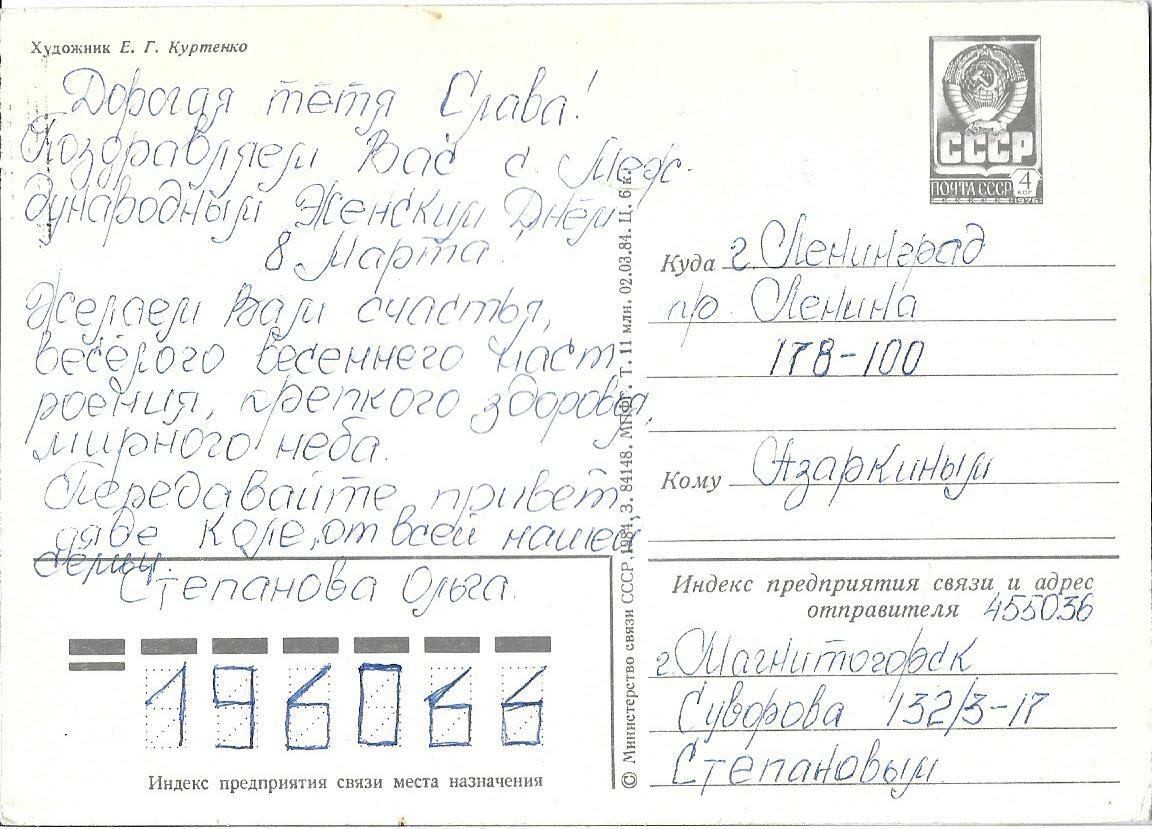 Художник Е. Г. Куртенко
Дорогая тётя Слава!
Поздравляем Вас с Меж-
дународным Женским Днём
8 Марта.
Желаем Вам счастья,
весёрого весеннего наст
роения, крепкого здоровья,
мирного неба.
Передавайте привет
дяве Коле, от всей нашей
семьи.
Степанова Ольга.
196066
Индекс предприятия связи места назначения
© Министерство связи СССР, 1984, З. 84148. МПФГ. Т. 11 млн. 02.03.84. Ц. 6 к.
СССР
ПОЧТА СССР 4
КОП
1976
Куда г. Ленинград
пр. Ленина
178-100
Кому Азаркиным
Индекс предприятия связи и адрес
отправителя 455036
г. Магнитогорск
Суворова 132/3-17
Степановым